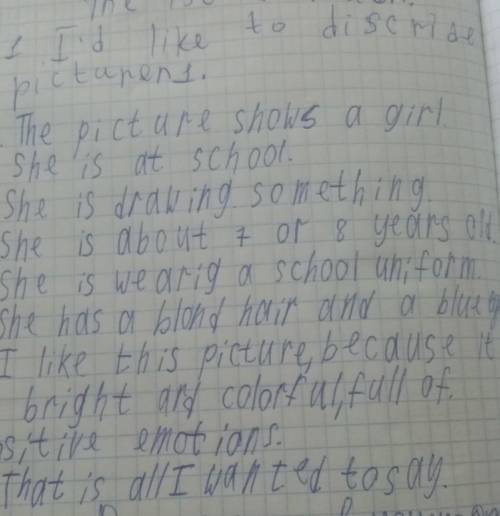 The
1 I'd like to discribe
picturen1.
The picture shows a girl.
She is at school.
She is drawing something.
She is about 7 or 8 years old.
She is wearig a school uniform.
She has a blond hair and a blue
I like this picture, because it
bright and colorful, full of.
sitive emotions.
That is all I wanted to say.